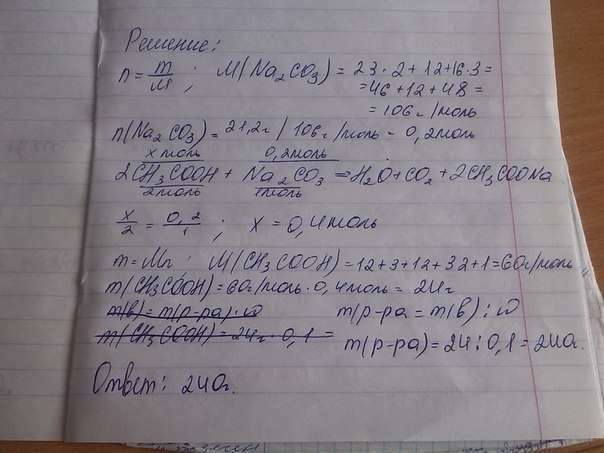 Решение:
n = m/M ; M(Na₂CO₃) = 23·2+12+16·3=
=46+12+48=
=106г/моль
n(Na₂CO₃)=21,2г/106г/моль=0,2моль
x моль 0,2моль
2CH₃COOH + Na₂CO₃ = H₂O+CO₂+2CH₃COONa
2моль 1моль
x/2 = 0,2/1 ; x = 0,4моль
m=Mn; M(CH₃COOH)=12+3+12+32+1=60г/моль
m(CH₃COOH)=60г/моль·0,4моль=24г
m(в)=m(р-ра)·ω m(р-ра=m(в):ω
m(CH₃COOH)=24г·0,1= m(р-ра)=24:0,1=240г.
Ответ: 240г.